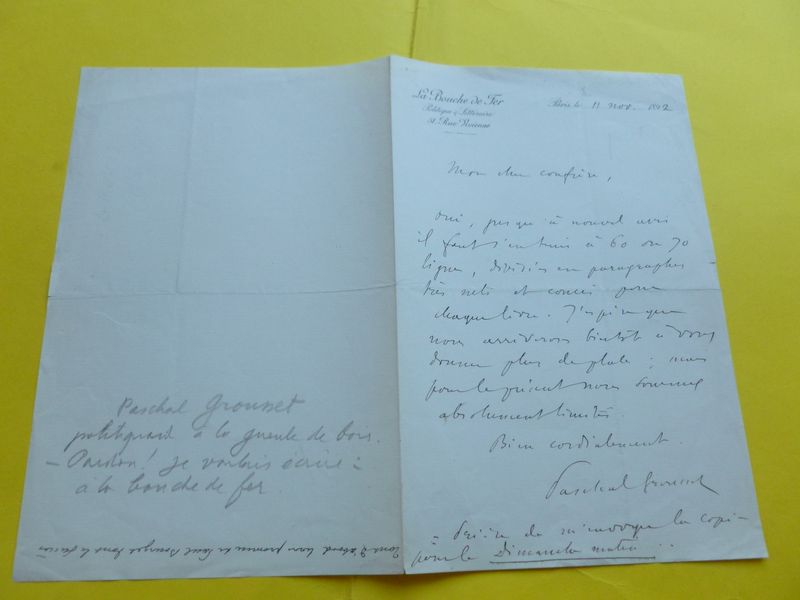 La Bouche de Fer
Politique & Littéraire
51 Rue Vivienne
Paris le 11 nov. 1892
Mon cher confrère,
oui, jusqu'à nouvel avis
il faut s'en tenir à 60 ou 70
lignes, divisées en paragraphes
très nets et concis pour
chaque livre. J'espère que
nous arriverons bientôt à vous
donner plus de place ; mais
pour le présent nous sommes
absolument limités.
Bien cordialement.
Paschal Grousset
= Prière de m'envoyer la copie
pour le Dimanche matin.
Paschal Grousset
politiquard à la gueule de bois.
— Pardon ! Je voulais écrire :
à la bouche de fer.